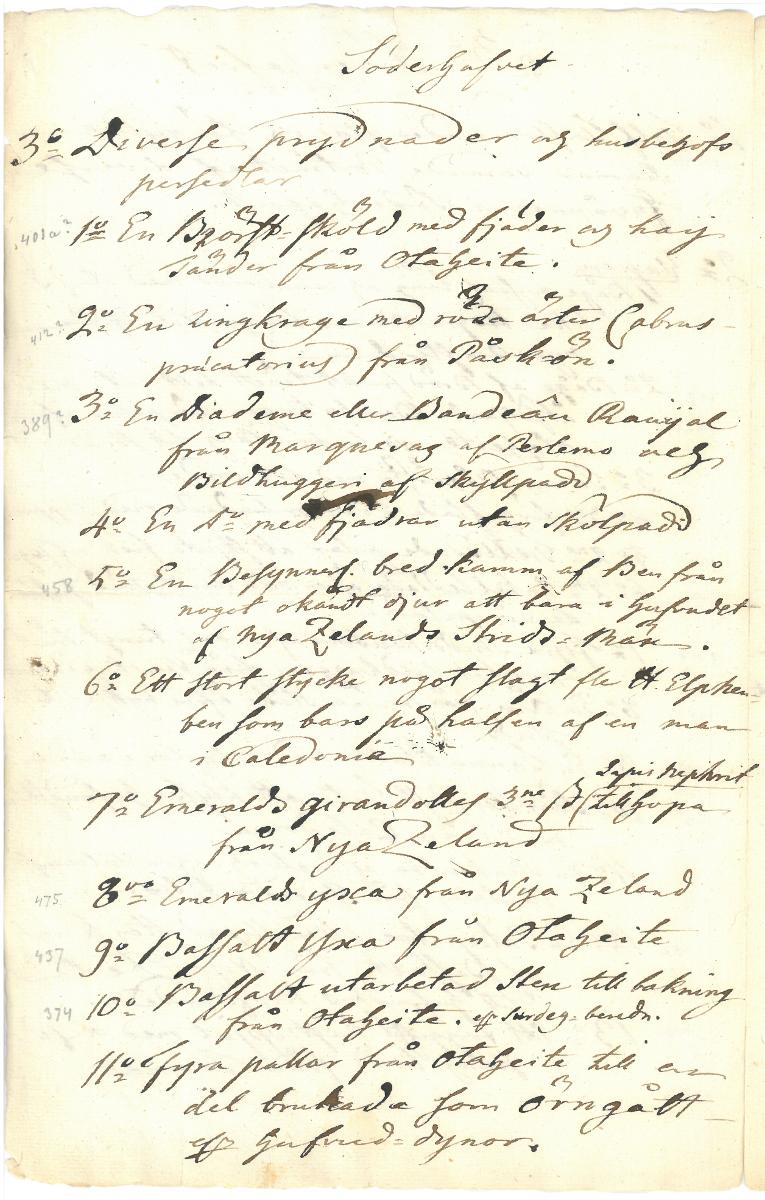 Söderhafvet
3º Diverse prydnader og husbehofs
persedlar
401a? 1º En Bröst-sköld med fjäder og haj
tänder från Otaheite.
412? 2º En ringkrage med röda ärter (abrus
præcatorius) från Påsk-ön.
389? 3º En Diademe eller Bandeau Rauijal
från Marquesas af Perlemo och
Bildhuggeri af Skyllpadd
4º En Dº med fjädrar utan Skölpadd
458 5º En Besynnerl. bred kamm af Ben från
nogot okändt djur att bära i hufvudet
af Nya Zelands Strids-Män.
6º Ett stort stycke nogot slagt Elphen-
ben som bars på halsen af en man
i Caledonia
Lapis Nephrit
7º Emeralds girandolles 3ne tillhopa
från Nya Zeland
475 8vo Emeralds yxa från Nya Zeland
437 9º Bassalt Yxa från Otaheite
374 10º Bassalt utarbetad Sten till bakning
från Otaheite. surdeg-beredn.
11º fyra pallar från Otaheite till en
del brukade som örngått
hufvud-dynor.